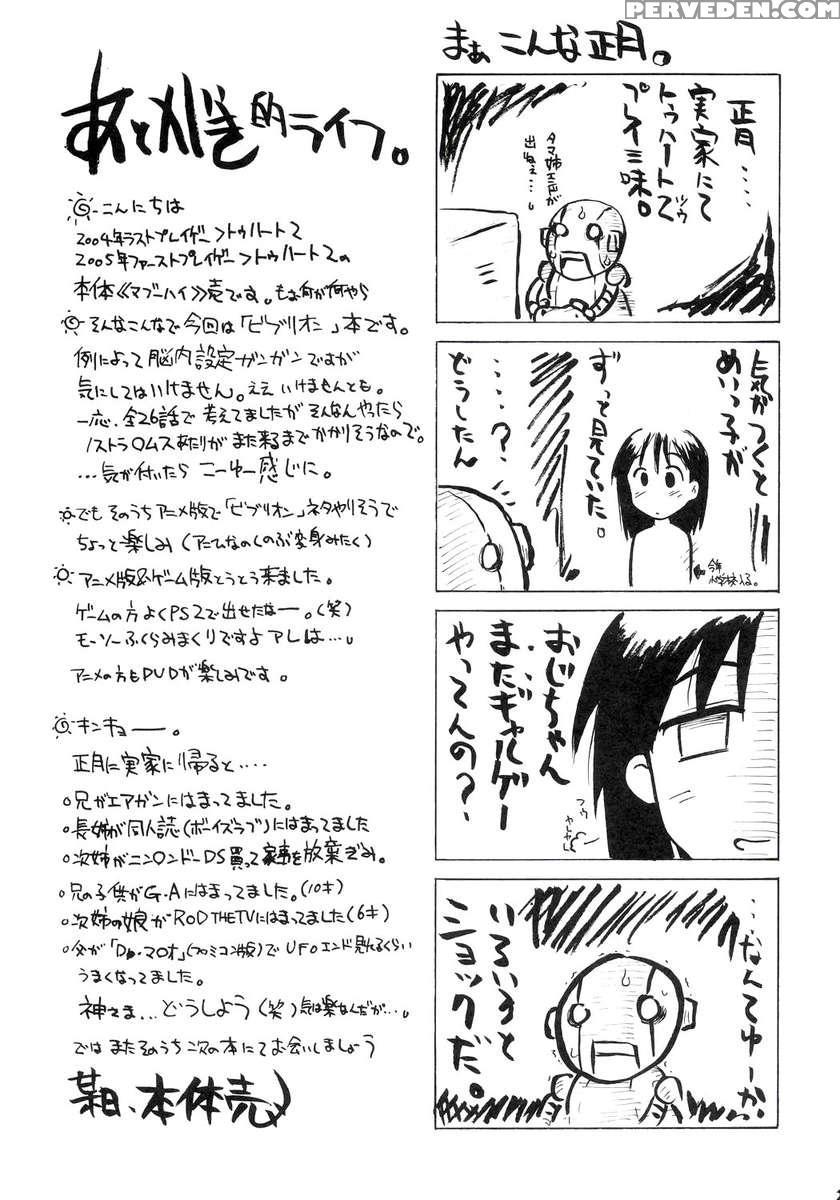 PERVEDEN.COM
まぁ こんな正月。
正月‥‥
実家にて
トゥハート2
ツウ
プレイ三味。
タマ姉エンドが
出ねぇ…。
気がつくと
めいっ子が
ずっと見ていた。
‥‥?
どうしたん
おじちゃん
‥‥
まだギャルゲー
やってんの?
…なんてゆーか
いろいろと
ショックだ。
あとがき的ライフ。
こんにちは
2004年ラストプレイゲー>トゥハート2
2005年ファーストプレイゲー>トゥハート2の
本体《マブーハイ》売です。もぉ何が何やら
そんなこんなで今回は「ビブリオン」本です。
例によって脳内設定ガンガンですが
気にしてはいけません。ええ いけませんとも。
一応、全26話で考えてましたが そんなんやったら
ノストラ〇ムスあたりがまた来るまでかかりそうなので。
…気が付いたら こーゆー感じに。
でも そのうちアニメ版で「ビブリオン」ネタやりそうで
ちょっと楽しみ(アニムなのくのぶ変身みたく)
アニメ版&ゲーム版とうとう来ました。
ゲームの方 よくPS2で出せたなー。(笑)
モーソーふくらみまくりですよ アレは…。
アニメの方もDVDが楽しみです。
キンキョー。
正月に実家に帰ると‥‥
○兄がエアガンにはまってました。
○長姉が同人誌(ボーイズラブ)にはまってました
○次姉がニン〇ンドーDS買って家事を放棄ぎみ。
○兄の子供がG・Aにはまってました。(10才)
○次姉の娘がROD THE TVにはまってました(6才)
○父が「Dr.マ〇オ」(ファミコン版)でUFOエンド見れるくらい
うまくなってました。
神さま…どうしよう(笑)気は楽なんだが…。
では またそのうち次の本にてお会いしましょう
某日、本体売